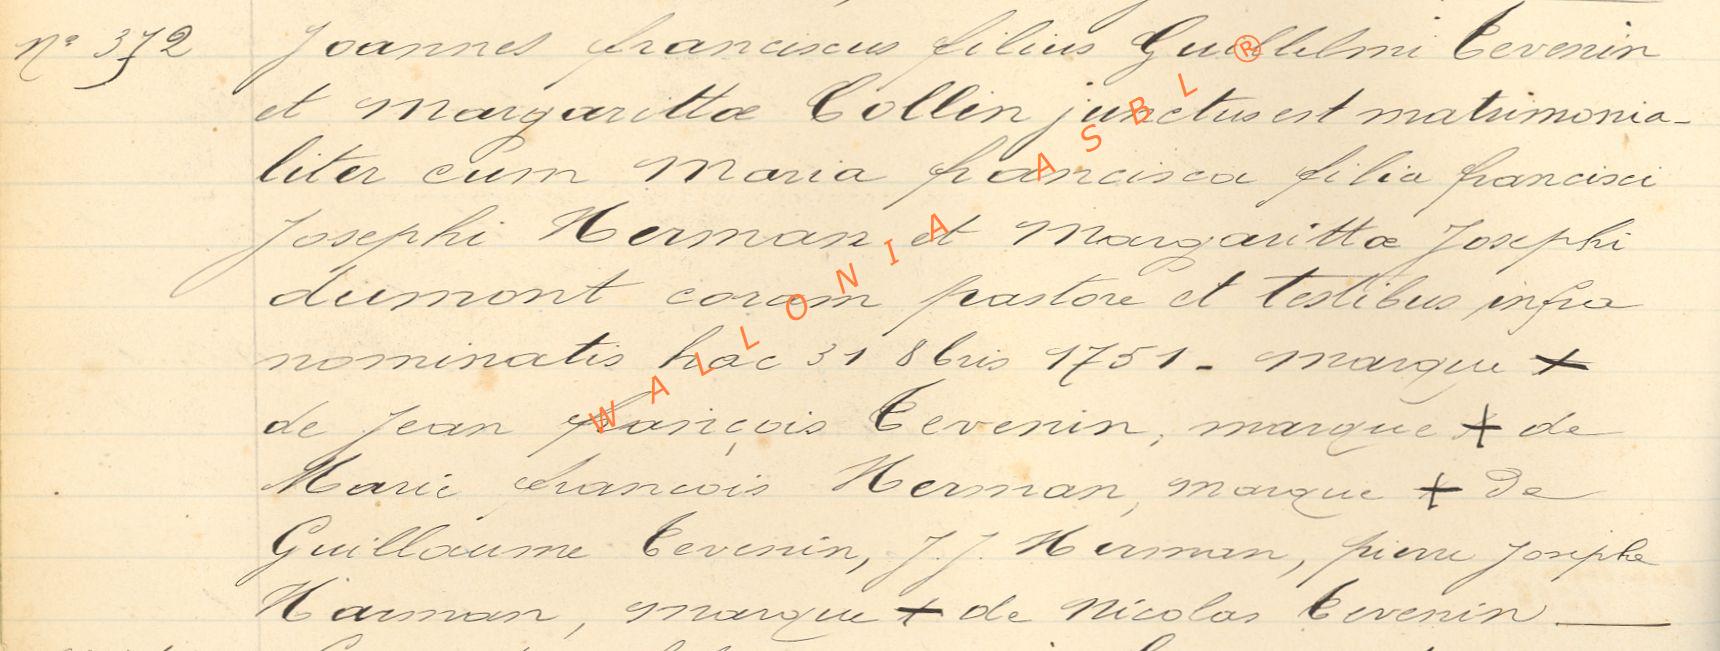 N° 372 Joannes franciscus filius Guillelmi Tevenin
et Margarittæ Collin junctus est matrimonia-
liter cum Maria francisca filia francisci
Josephi Herman et Margarittæ Josephi
dumont coram pastore et testibus infra
nominatis hac 31 8bris 1751 - marque +
de Jean françois Tevenin, marque + de
Marie francois Herman, marque + de
Guillaume Tevenin, J. J. Herman, pierre Josephe
Harman, marque + de Nicolas Tevenin
WALLONIA ASBL ®